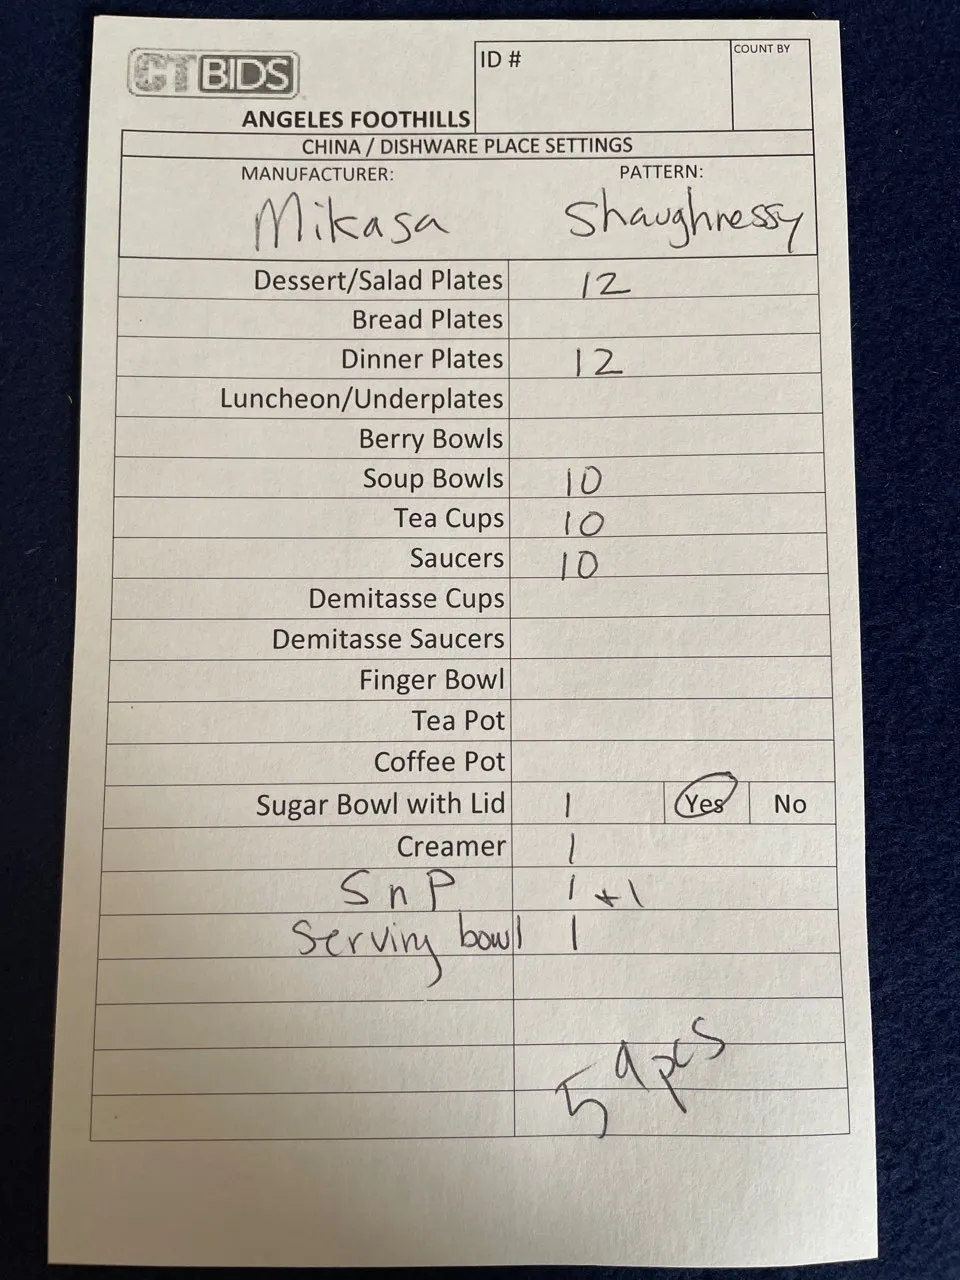 CTBIDS
ID #
COUNT BY
ANGELES FOOTHILLS
CHINA / DISHWARE PLACE SETTINGS
MANUFACTURER: PATTERN:
Mikasa Shaughnessy
Dessert/Salad Plates 12
Bread Plates
Dinner Plates 12
Luncheon/Underplates
Berry Bowls
Soup Bowls 10
Tea Cups 10
Saucers 10
Demitasse Cups
Demitasse Saucers
Finger Bowl
Tea Pot
Coffee Pot
Sugar Bowl with Lid 1 Yes No
Creamer 1
SnP 1 + 1
Serving bowl 1
59pcs